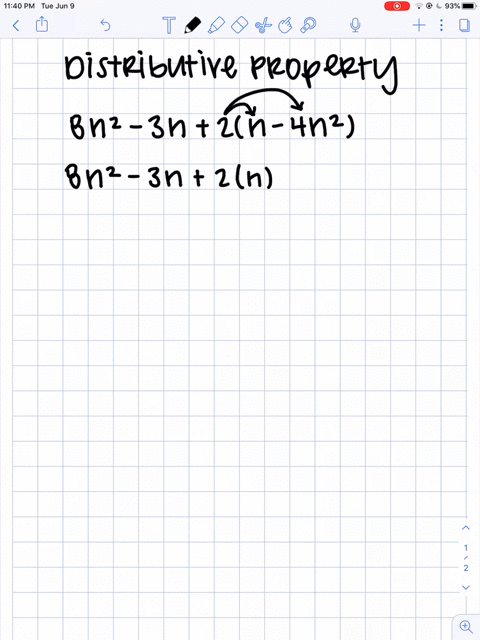 11:40 PM Tue Jun 9 93%
Distributive Property
8n² - 3n + 2(n - 4n²)
8n² - 3n + 2(n)
1
/
2